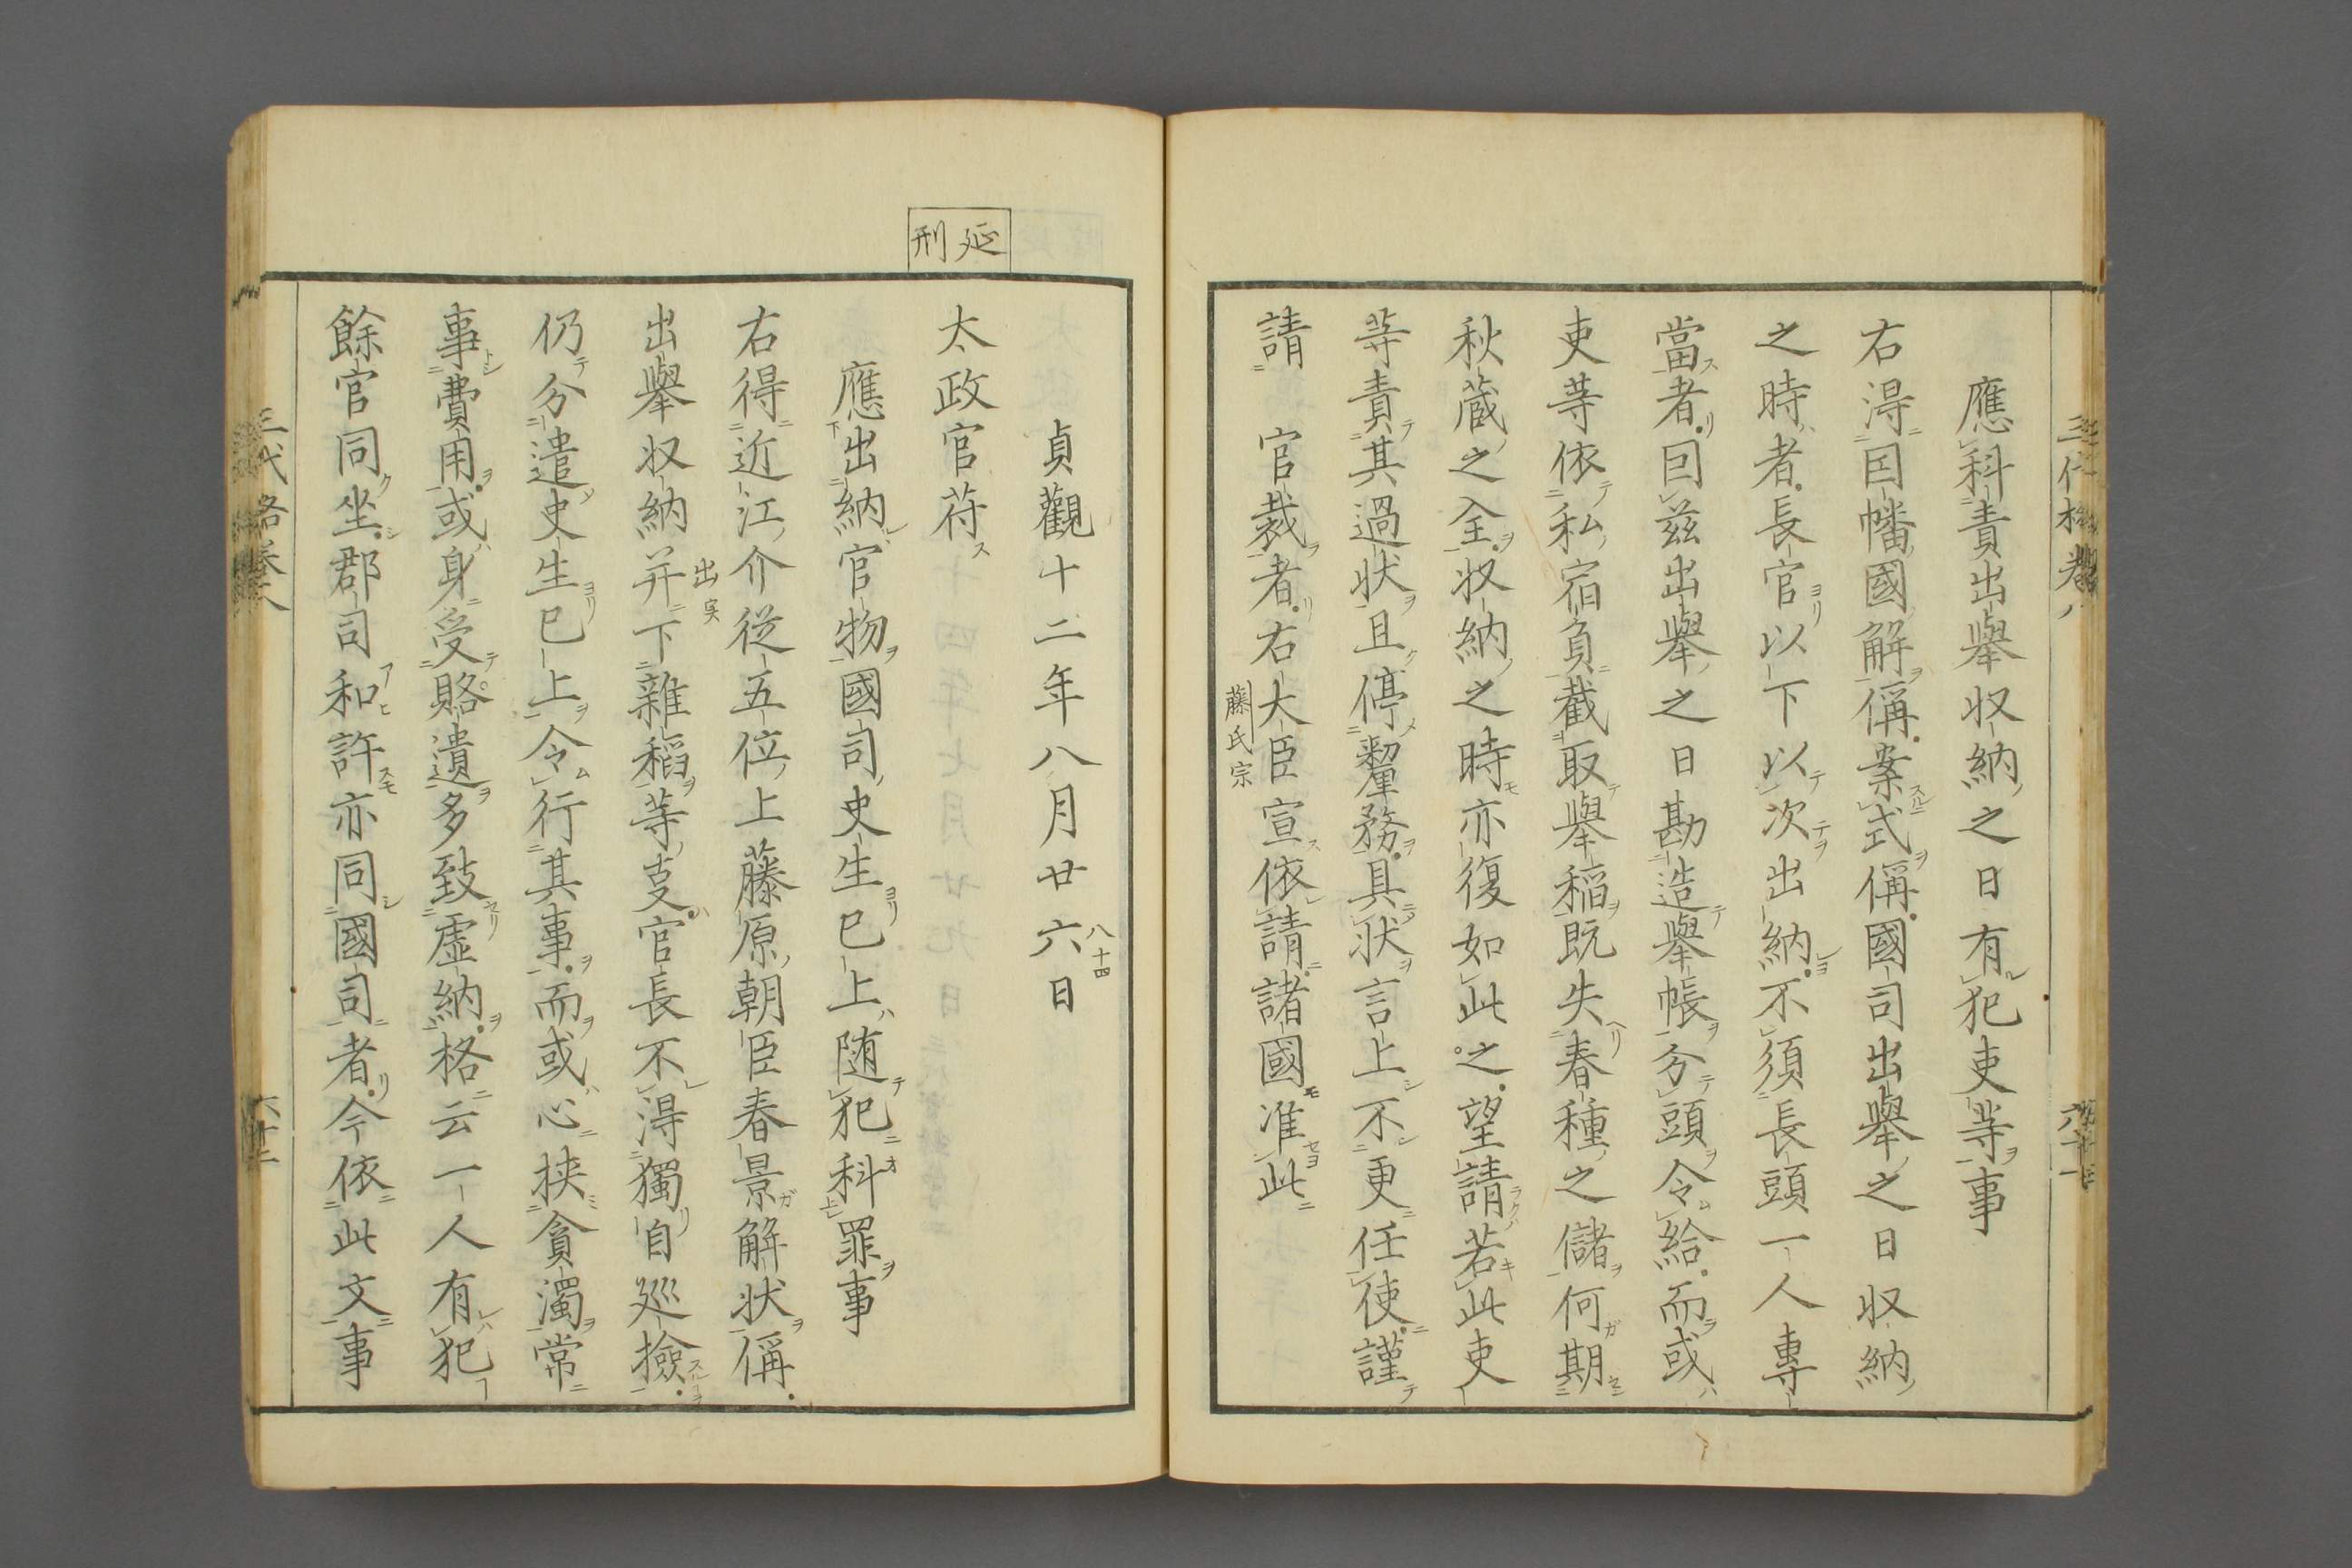 應科責出舉収納之日有犯吏等事
右淂囙幡國解偁案式偁國司出舉之日収納
之時者長官以下以次出納不須長頭一人專
當者囙茲出舉之日勘造舉帳分頭令給而或
吏等依私宿負截取舉稲既失春種之儲何期
秋蔵之全収納之時亦復如此之望請若此吏
等責其過状且停釐務具状言上不更任使謹
請　官裁者右大臣宣依請諸國准此
藤氏宗
貞觀十二年八月廿六日
八十四
延刑
太政官苻
應出納官物國司史生已上随犯科罪事
右得近江介従五位上藤原朝臣春景解状偁
出舉収納并下雜稻等叓官長不淂獨自巡撿
出実
仍分遣史生已上令行其事而或心挟貪濁常
事費用或身受賂遺多致虚納格云一人有犯
餘官同坐郡司和許亦同國司者今依此文事
三代格巻八
六十二